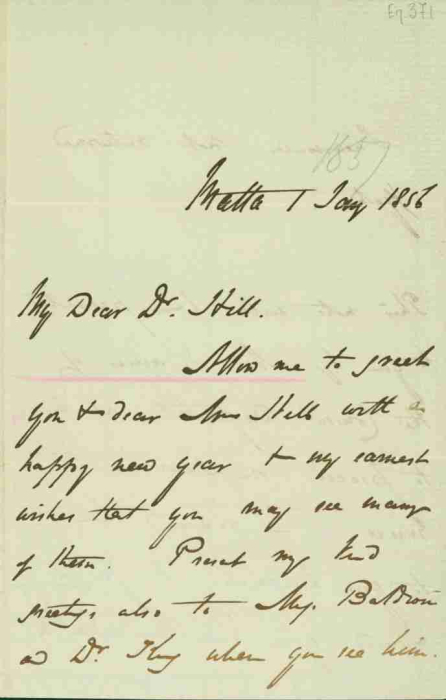 Eg. 371
1857
Malta 1 Jany 1856
My Dear Dr. Hill.
Allow me to greet
you & dear Mrs Hill with a
happy new year & my earnest
wishes that you may see many
of them. Present my kind
greetings also to Mr. Baldwin
and Dr. King when you see him.